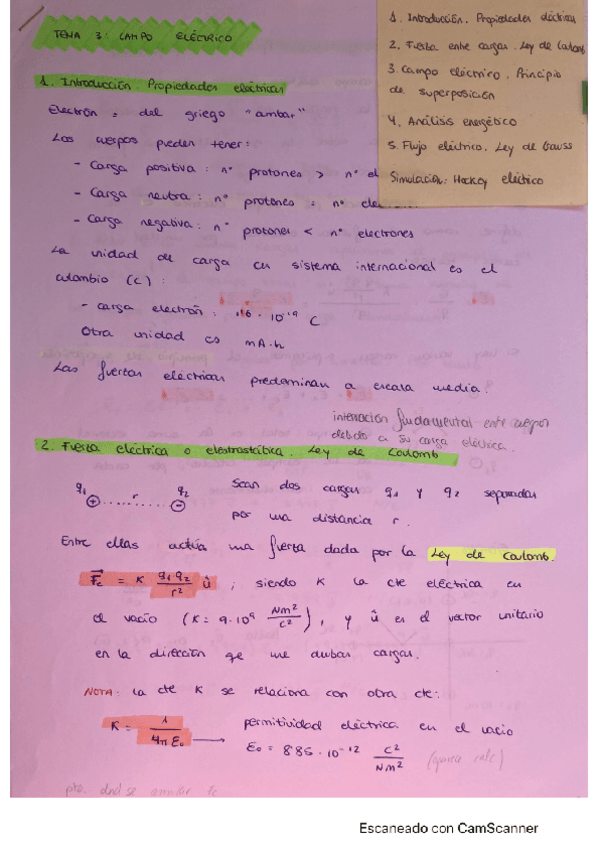 TEMA 3: CAMPO ELÉCTRICO
1. Introducción. Propiedades eléctricas
2. Fuerza entre cargas. Ley de Coulomb
3. Campo eléctrico. Principio
de superposición
4. Análisis energético
5. Flujo eléctrico. Ley de Gauss
Simulación: Hockey eléctrico
1. Introducción Propiedades eléctricas
Electrón = del griego "ambar"
Los cuerpos pueden tener:
- Carga positiva : nº protones > nº el
- Carga neutra : nº protones = nº elec
- Carga negativa : nº protones < nº electrones
La unidad de carga en sistema internacional es el
culombio (C) :
- carga electrón : 1'6 · 10⁻¹⁹ C
Otra unidad es mA·h
Las fuerzas eléctricas predominan a escala media.
interacción fundamental entre cuerpos
debido a su carga eléctrica.
2. Fuerza eléctrica o electrostática. Ley de Coulomb
q1 r q2
+ ........ -
Sean dos cargas q1 y q2 separadas
por una distancia r.
Entre ellas actúa una fuerza dada por la Ley de Coulomb.
Fe = K q1 q2 / r² û ; siendo K la cte eléctrica en
el vacío (K = 9·10⁹ Nm²/C²), y û es el vector unitario
en la dirección qe une ambas cargas.
NOTA: la cte K se relaciona con otra cte:
K = 1 / 4π ε₀ → permitividad eléctrica en el vacío
ε₀ = 8'85 · 10⁻¹² C²/Nm²
Escaneado con CamScanner